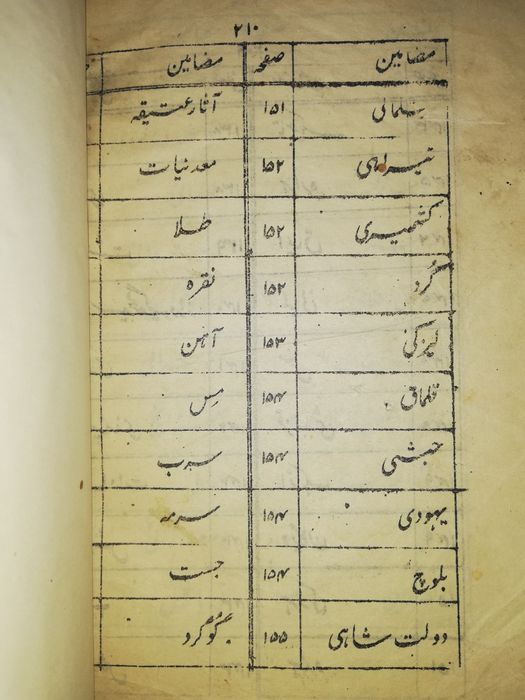 ۲۱۰
مضامین صفحه مضامین
سلمانی ۱۵۱ آثار عتیقه
تیراهی ۱۵۲ معدنیات
کشمیری ۱۵۲ طلا
کُرد ۱۵۲ نقره
لیزکی ۱۵۳ آهن
قلماق ۱۵۴ مِس
حبشی ۱۵۴ سرب
یهودی ۱۵۴ سرمه
بلوچ ۱۵۴ جست
دولت شاهی ۱۵۵ گوگرد